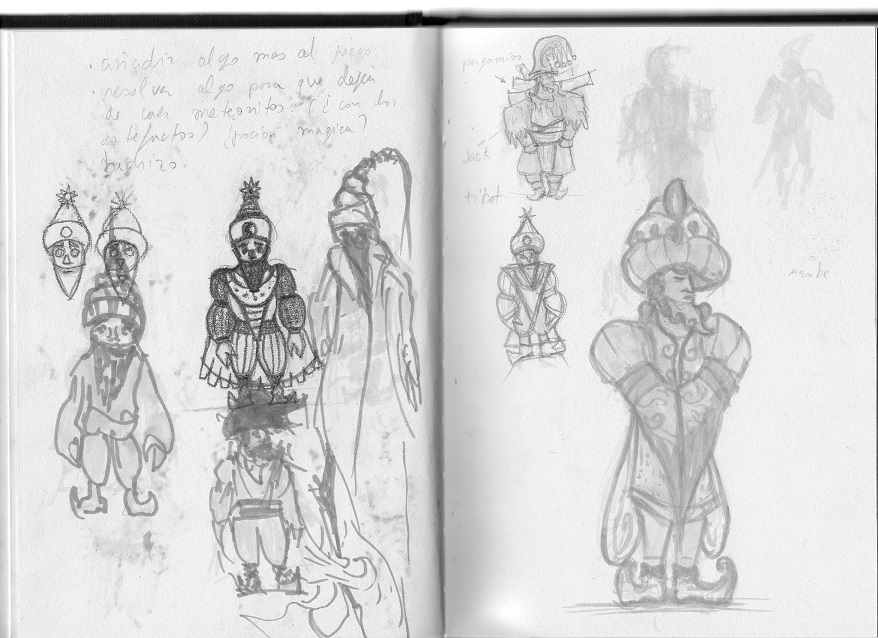 · añadir algo mas al juego
· resolver algo para que dejen
de caer meteoritos. (¿con los
artefactos) (pocion magica?
hechizo.
pergaminos
Jack
tibet
Arabe